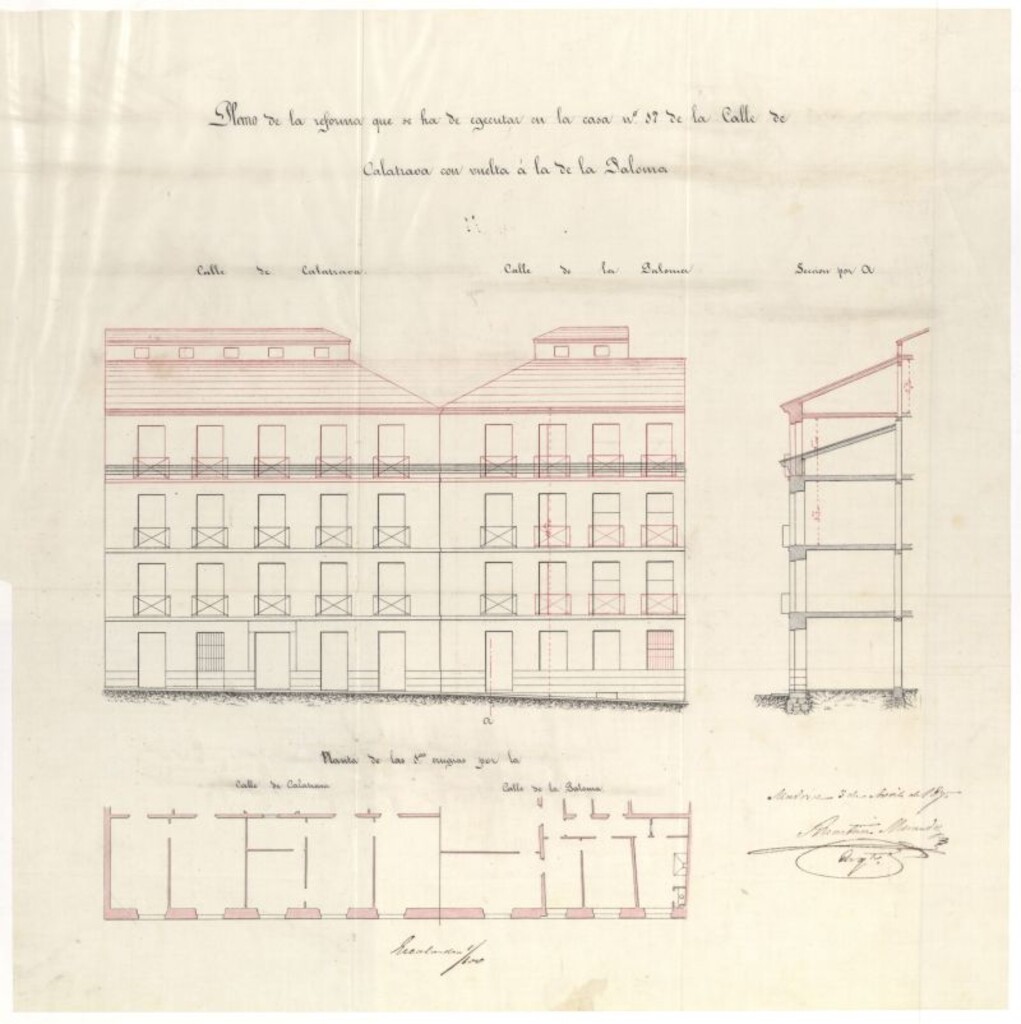 Plano de la reforma que se ha de egecutar en la casa nº 37 de la Calle de
Calatrava con vuelta á la de la Paloma
Calle de Calatrava
Calle de la Paloma
Seccion por A
A
Planta de las 1as crugias por la
Calle de Calatrava
Calle de la Paloma
Madrid 3 de Abril de
Arqto
Escala de 1/100